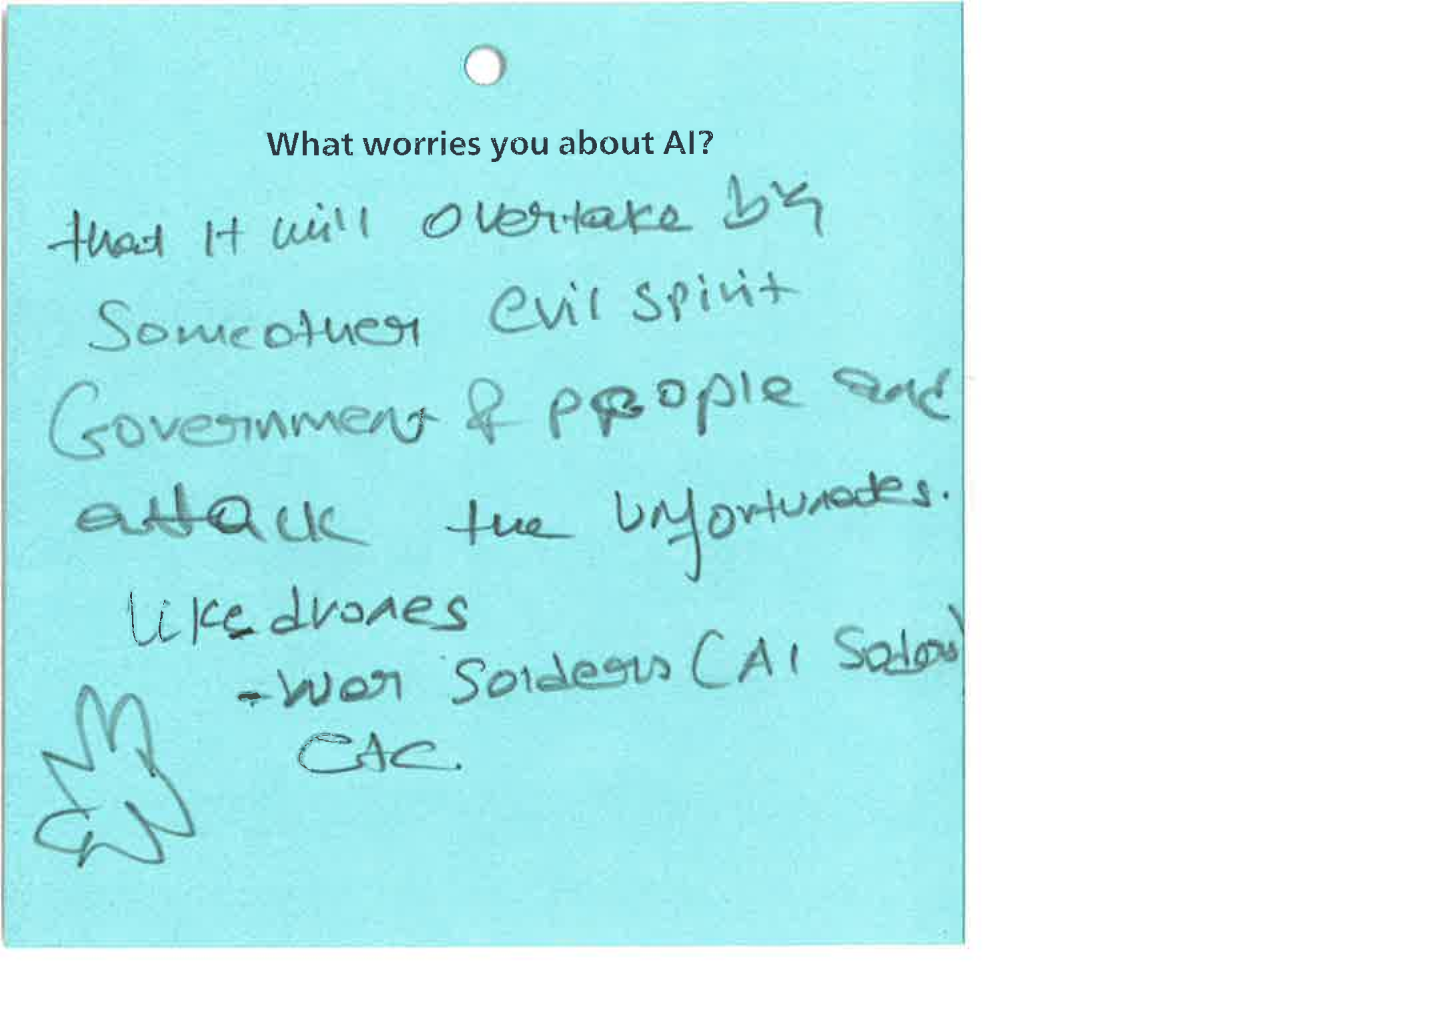 What worries you about AI?
that it will overtake by
Someother evil spirit
Government & people and
attack the unfortunates.
like drones
- War Soiders (AI